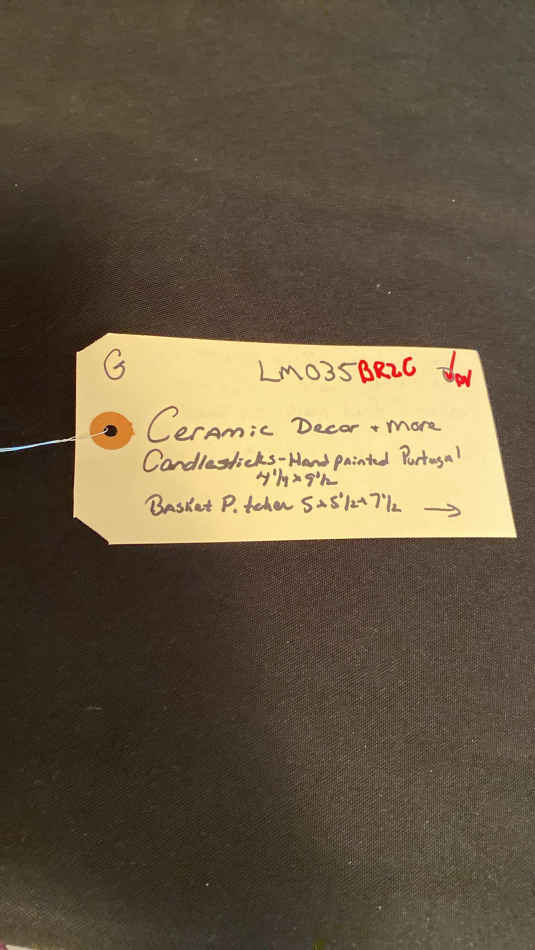 G LM035 BR2C
Ceramic Decor + More
Candlesticks - Hand painted Portugal
4 1/4 x 9 1/2
Basket Pitcher 5 x 5 1/2 x 7 1/2 →